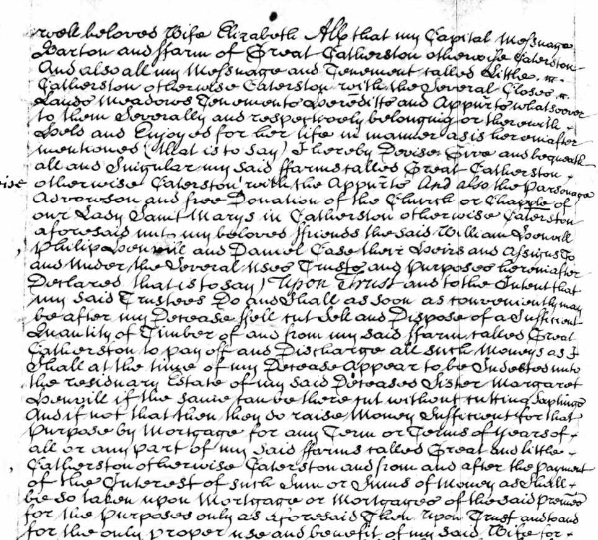 well beloved Wife Elizabeth Also that my Capital Messuage
Barton and ffarm of Great Catherston otherwise Caterston
And also all my Messuage and Tenement called Little
Catherston otherwise Caterston with the Several Closes
Lands Meadows Tenements Heredits and Appurts whatsoever
to them Severally and respectively belonging or therewith
Held and Enjoyed for her life in manner as is hereinafter
mentioned (that is to say) I hereby Devise Give and bequeath
all and Singular my said ffarms called Great Catherston
otherwise Caterston with the Appurts And also the Parsonage
Advowson and free Donation of the Church or Chapple of
our Lady Saint Marys in Catherston otherwise Caterston
aforesaid unto my beloved ffriends the said William
Philip and Daniel Case their Heirs and Assigns To
and under the Several Uses Trusts and Purposes hereinafter
Declared that is to say) Upon Trust and to the Intent that
my Said Trustees Do and Shall as soon as conveniently may
be after my Decease ffell cut Sell and Dispose of a Sufficient
Quantity of Timber of and from my Said ffarm called Great
Catherston to pay off and Discharge all such Moneys as I
Shall at the time of my Decease Appear to be Indebted unto
the residuary Estate of my Said Deceased Sister Margaret
if the same can be there cut without cutting Saplings
And if not that then they do raise Money Sufficient for that
Purpose by Mortgage for any Term or Terms of Years of
all or any part of my Said ffarms called Great and little
Catherston otherwise Caterston and from and after the payment
of the Interest of such Sum or Sums of Money as Shall
be so taken upon Mortgage or Mortgages of the said premes
for the Purposes only as aforesaid Then Upon Trust and to and
for the only proper use and benefit of my Said Wife for